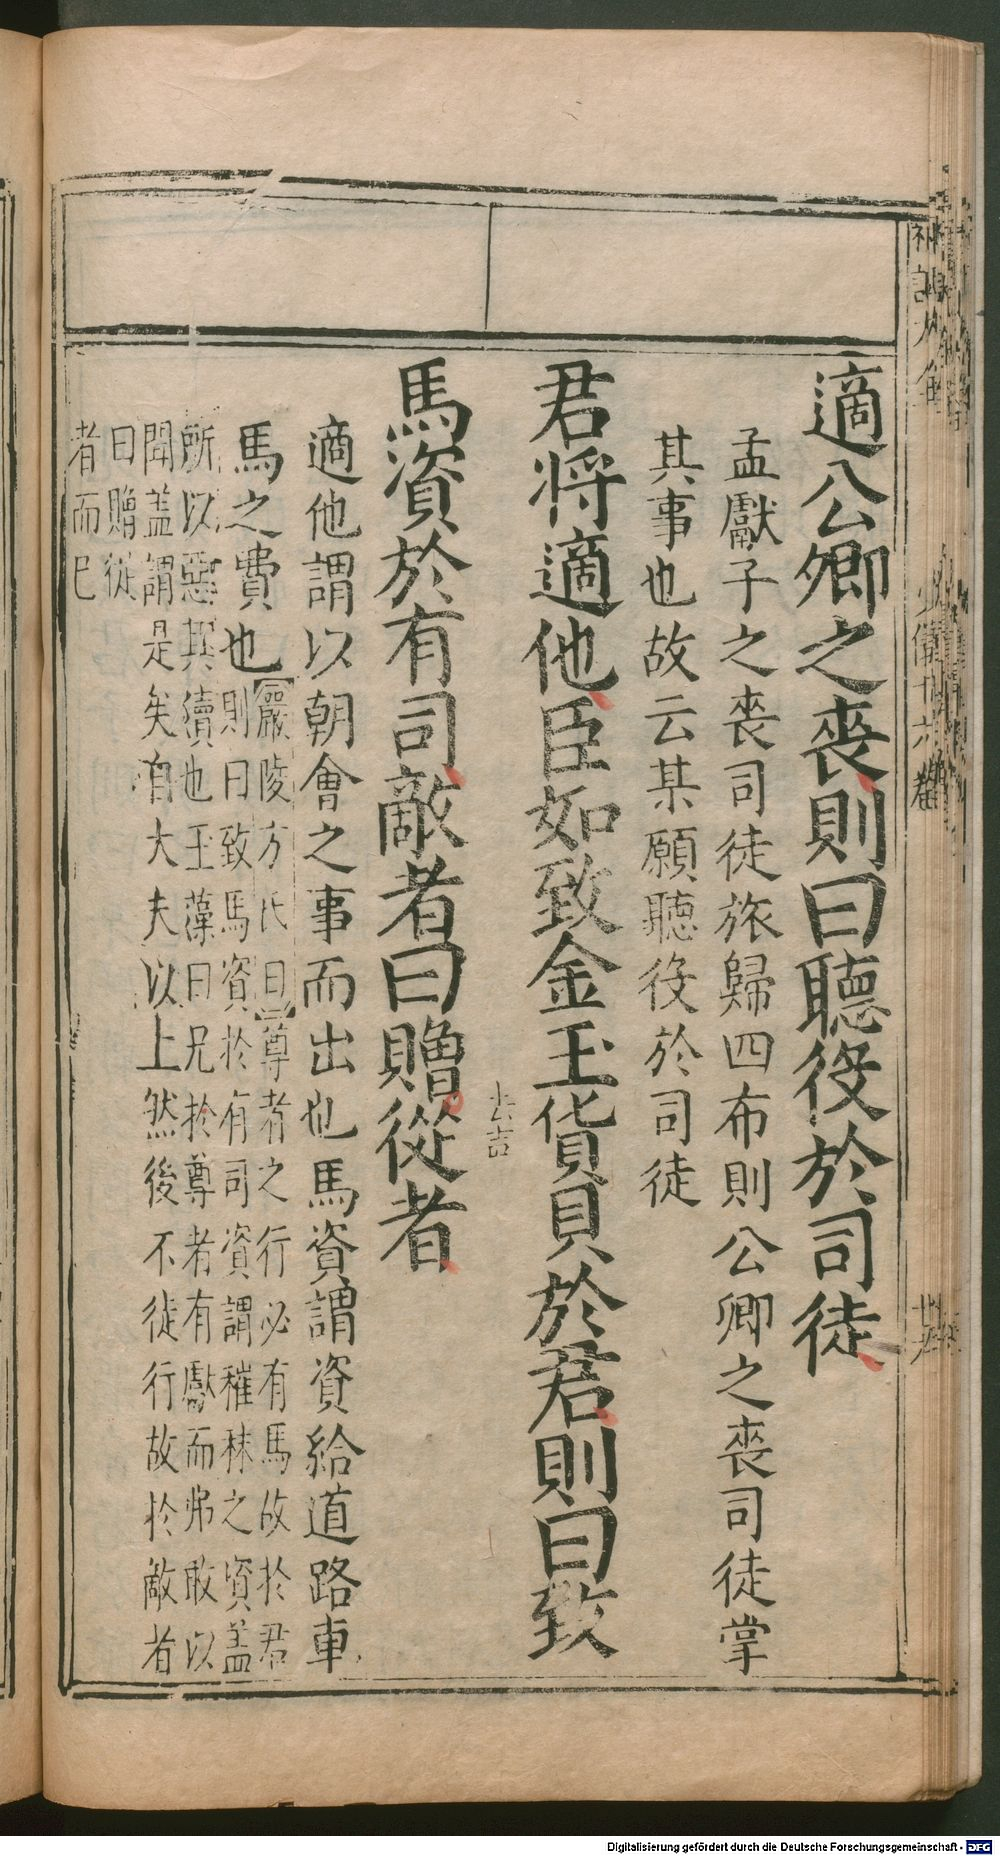 適公卿之喪則曰聽役於司徒
孟獻子之喪司徒旅歸四布則公卿之喪司徒掌
其事也故云某願聽役於司徒
君將適他臣如致金玉貨貝於君則曰致
去吉
馬資於有司敵者曰贈從者
適他謂以朝會之事而出也馬資謂資給道路車
馬之費也
嚴陵方氏曰尊者之行必有馬故於君
則曰致馬資於有司資謂稚秣之資盖
所以惡其瀆也玉藻曰兄於尊者有獻而弗敢以
聞盖謂是矣自大夫以上然後不徒行故於敵者
曰贈從
者而已
Digitalisierung gefördert durch die Deutsche Forschungsgemeinschaft - DFG